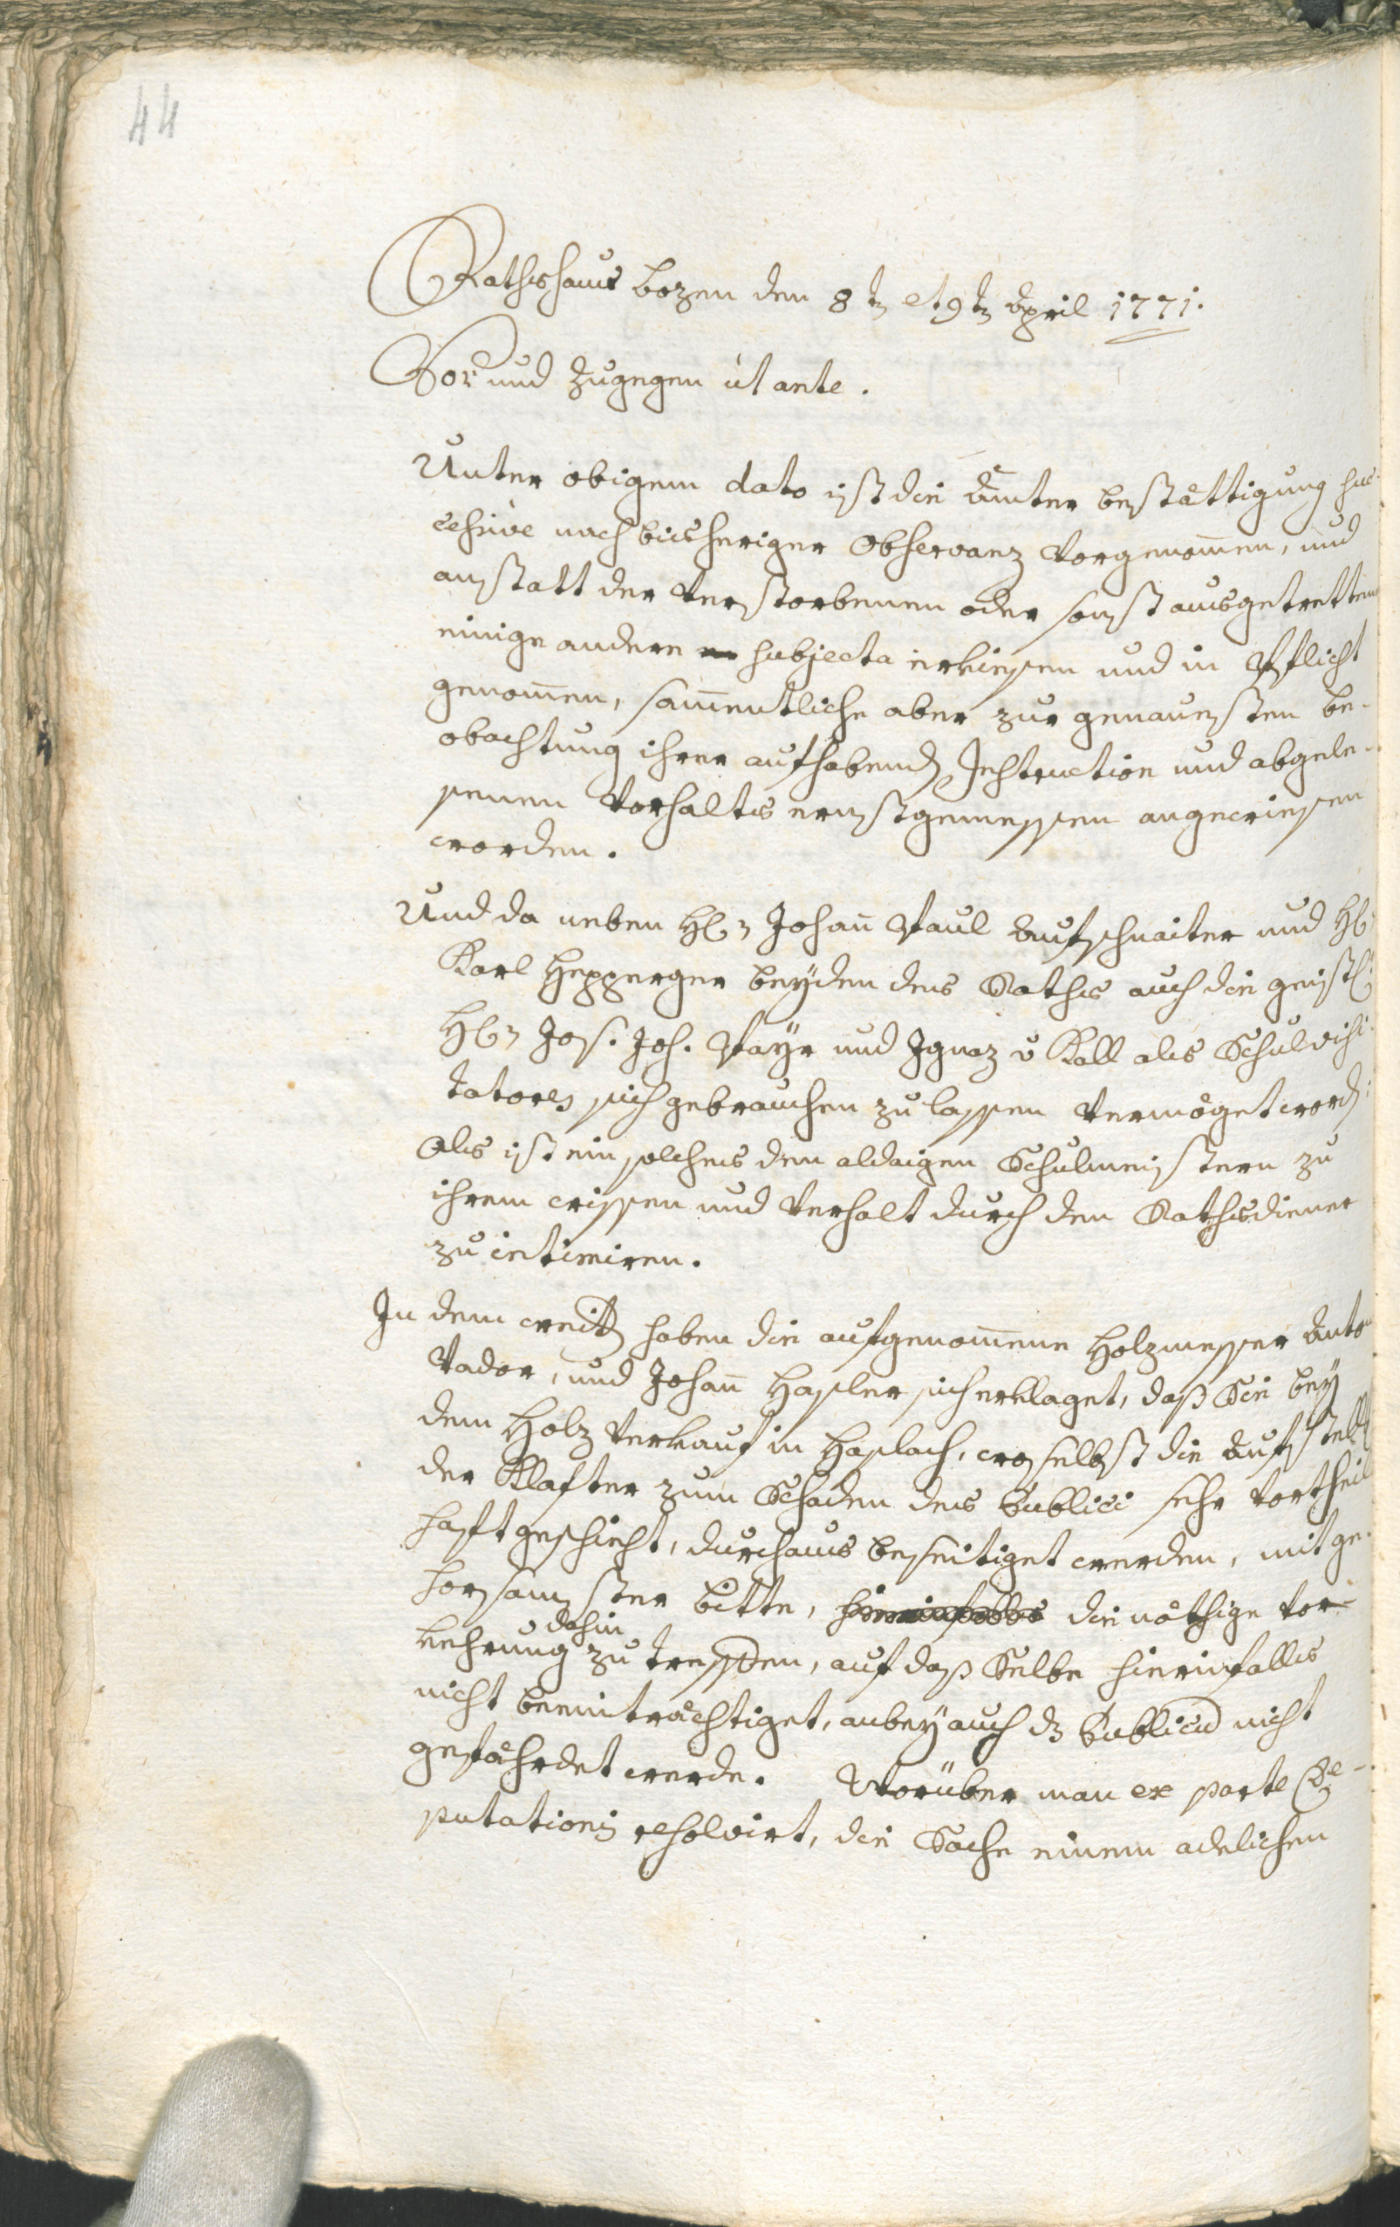 44
Rathshaus bozen den 8t et 9t April 1771.
Vor und zugegen ut ante.
Unter obigem dato ist die Ämter bestättigung suc-
cessive nach bisheriger Observanz vorgenommen, und
anstatt der verstorbenen oder sonst ausgetrettenen
einige andere subjecta erkiesen und in Pflicht
genommen, sammentliche aber zur genauesten be-
obachtung ihrer aufhabend Instruction und abgele-
senen Vorhalts ernstgemessen angewiesen
worden.
Und da neben H: Johann Paul Aufschnaiter und H:
Karl Hepperger beyden des Raths auch die geistl:
H: Jos. Joh. Payr und Ignaz v Kall als Schulvisi-
tatores sich gebrauchen zu lassen vermöget word:
Als ist ein solches den aldaigen Schulmeistern zu
ihrem wissen und Verhalt durch den Rathsdiener
zu intimiren.
In dem weit haben die aufgenommene Holzmesser Anton
Vador, und Johann Hasler sich erklaget, daß Sie bey
dem Holz Verkauf in Haslach, woselbst die Aufstell
der Klafter zum Schaden des Publici sehr vortheil
haft geschieht, durchaus beseitiget werden, mit ge-
horsamster bitte, die nöthige Vor-
kehrung dahin zu treffen, auf daß Selbe hierinfalls
nicht beeinträchtiget, anbey auch dz Publicum nicht
gefährdet werde. Worüber man ex parte De-
putationis resolvirt, die Sache einem adelichen